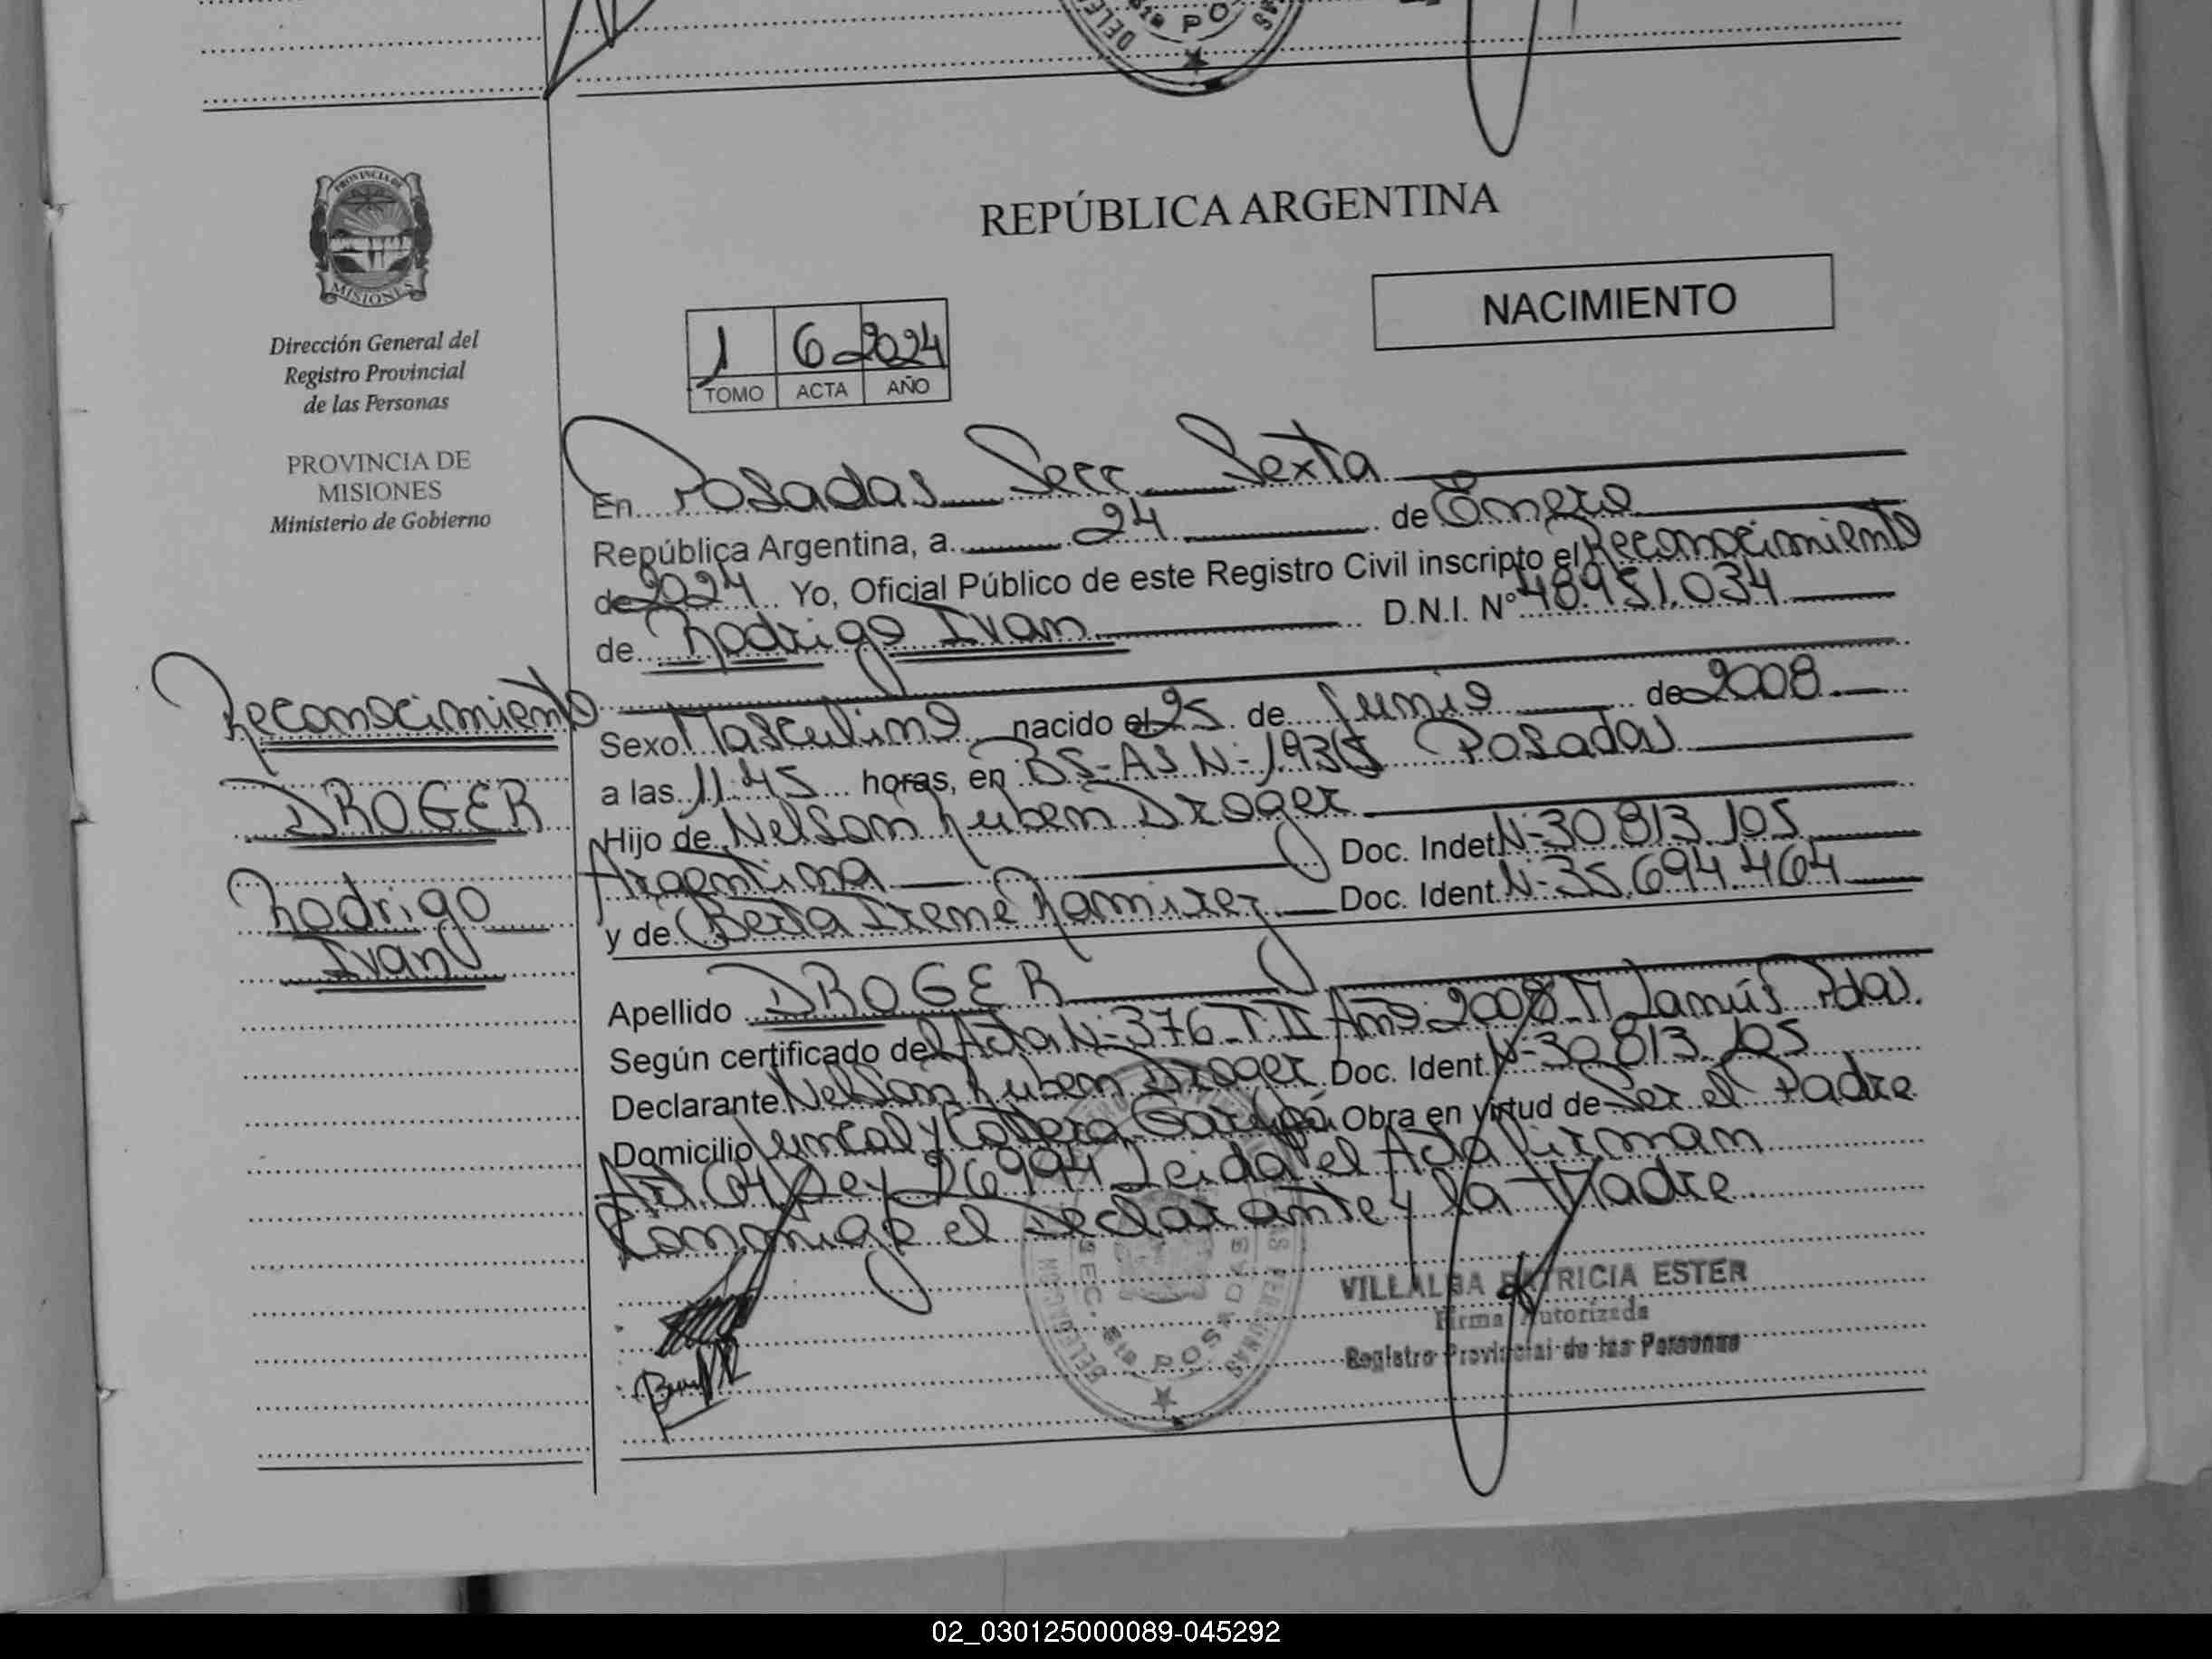 PROVINCIA DE
MISIONES
Dirección General del
Registro Provincial
de las Personas
PROVINCIA DE
MISIONES
Ministerio de Gobierno
REPÚBLICA ARGENTINA
NACIMIENTO
1 6 2024
TOMO ACTA AÑO
En Posadas Secc Sexta
República Argentina, a 24 de Enero
de 2024 Yo, Oficial Público de este Registro Civil inscripto el Reconocimiento
de Rodrigo Ivan D.N.I. Nº 48.951.034
Reconocimiento
DROGER
Rodrigo
Ivan
Sexo Masculino nacido el 25 de Junio de 2008
a las 11:45 horas, en BS-AS N- Posadas
Hijo de Nelson Ruben Droger
Argentina Doc. Indet N-30.813.105
y de Berta Irene Ramirez Doc. Ident. N-35.694.464
Apellido DROGER
Según certificado del Acta N-376-T.II Año 2008-M Lanús Pdas.
Declarante Nelson Ruben Droger Doc. Ident. N-30.813.105
Domicilio Obra en virtud de Ser el Padre
Art. 64 Ley 26994 Leida el Acta Firman
Conmigo el Declarante y la Madre
SEC. 6ta POSADAS
VILLALBA PATRICIA ESTER
Firma Autorizada
Registro Provincial de las Personas
02_030125000089-045292